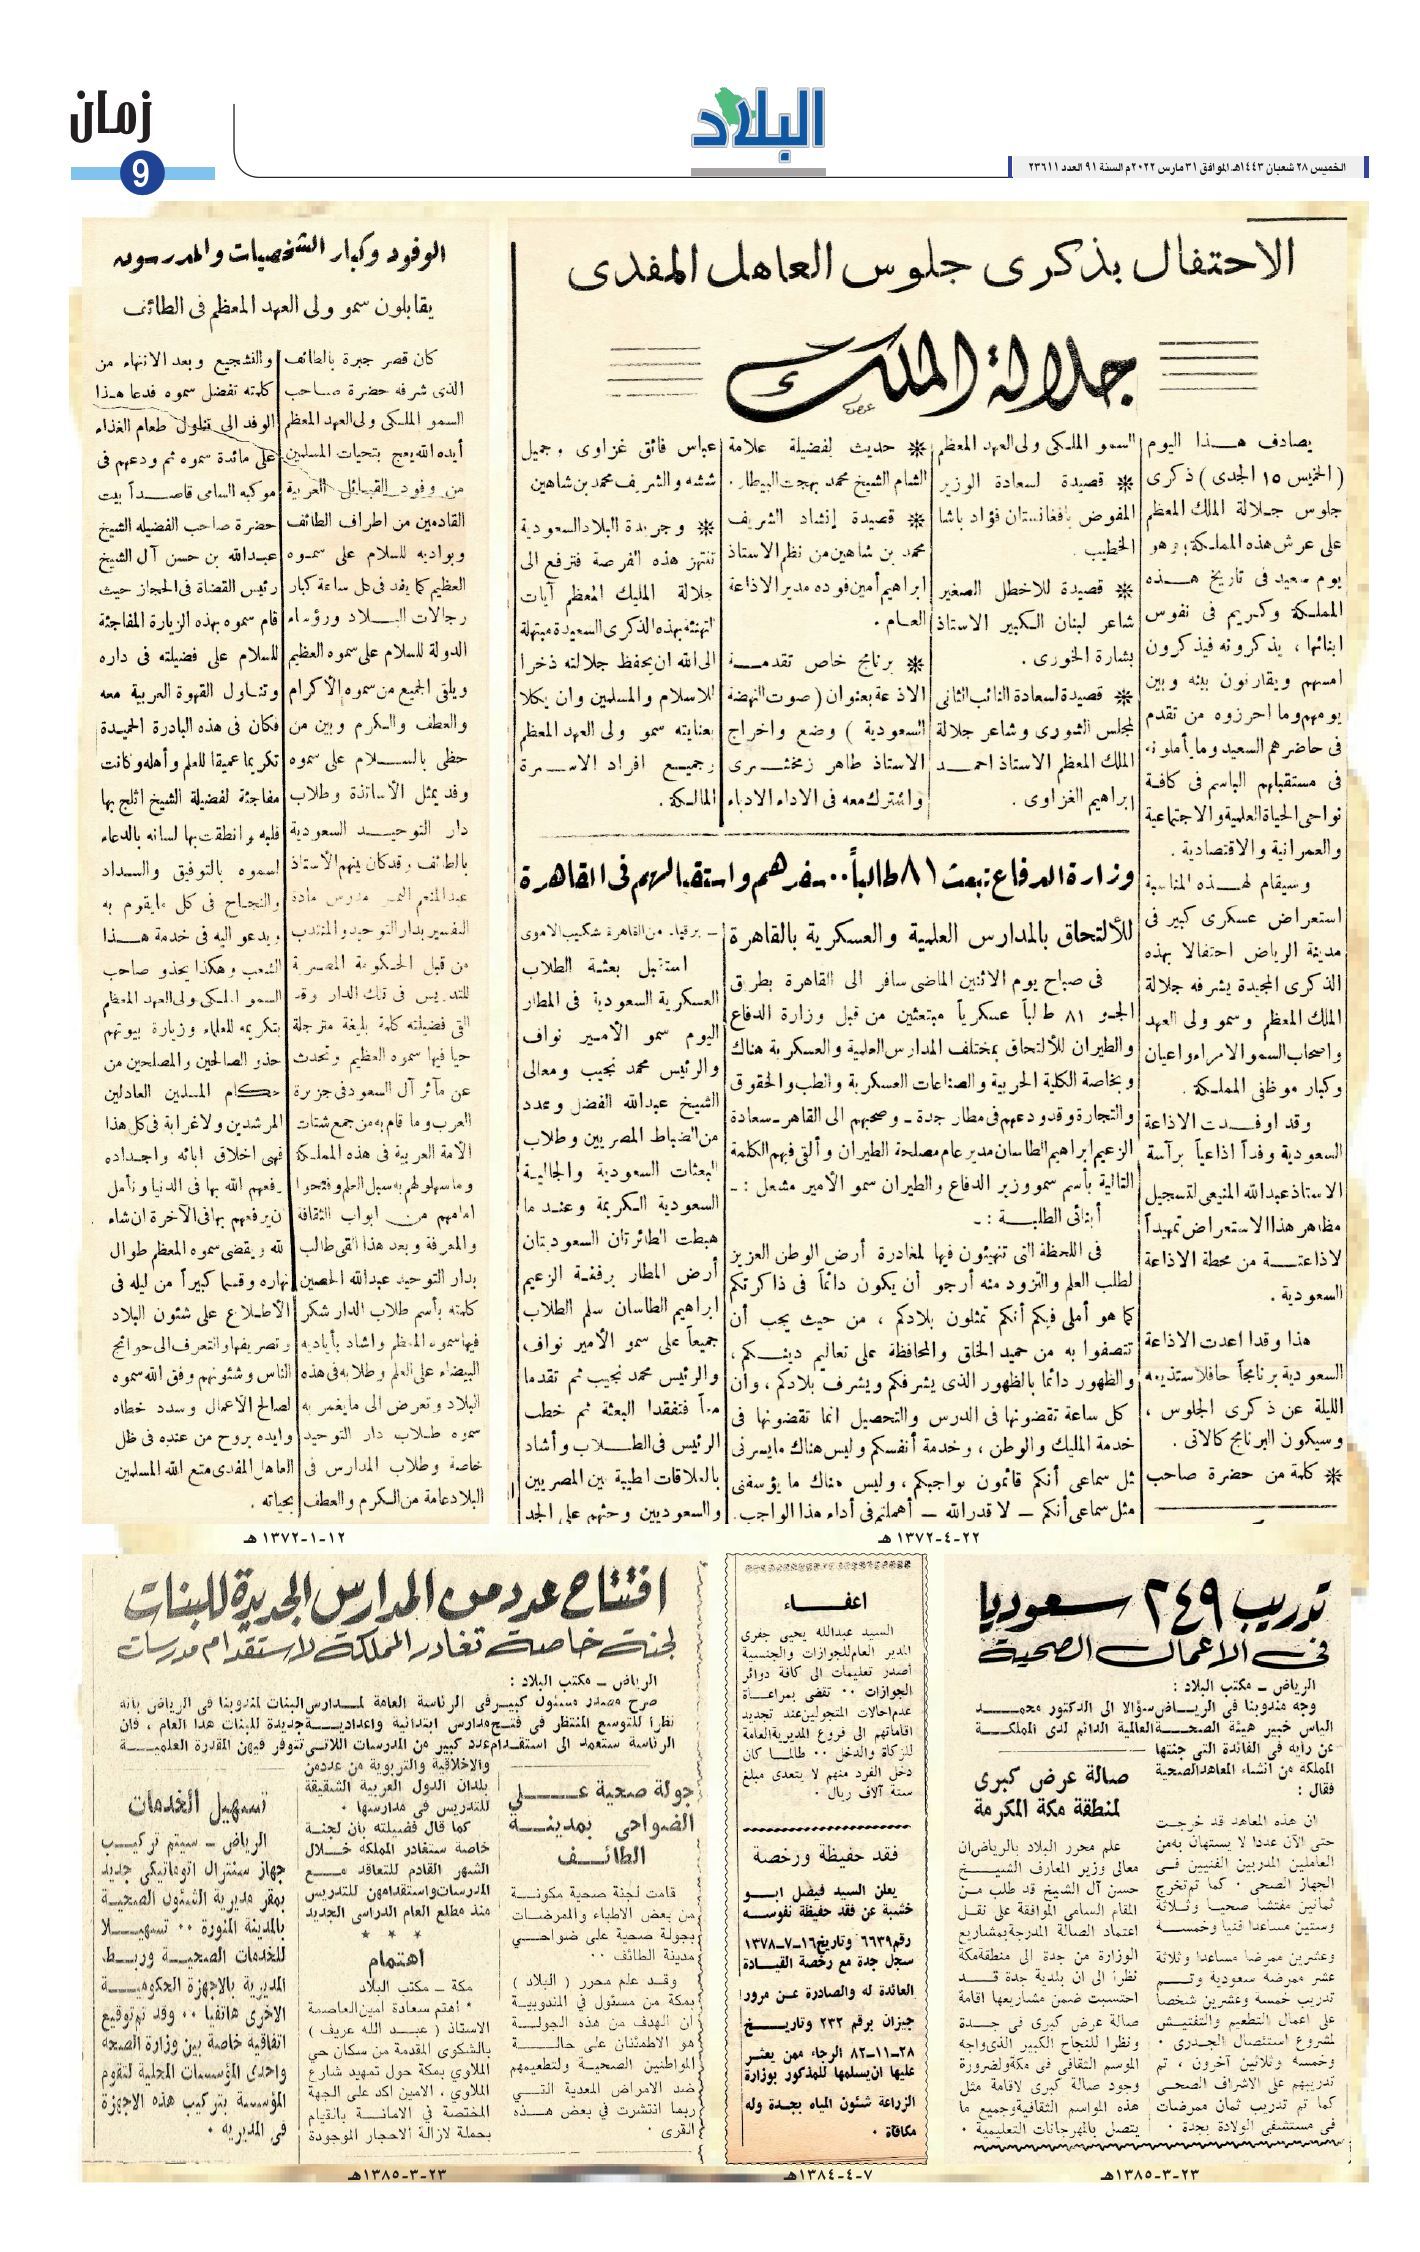 زمان
9
البلاد
الخميس ٢٨ شعبان ١٤٤٣هـ الموافق ٣١ مارس ٢٠٢٢م السنة ٩١ العدد ٢٣٦١١
الاحتفال بذكرى جلوس العاهل المفدى
جلالة الملك
يصادف هذا اليوم
( الخميس ١٥ الجدى ) ذكرى
جلوس جلالة الملك المعظم
على عرش هذه المملكة ؛ وهو
يوم سعيد فى تاريخ هذه
المملكة وكريم فى نفوس
ابنائها ، يذكرونه فيذكرون
امسهم ويقارنون بينه وبين
يومهم وما احرزوه من تقدم
فى حاضرهم السعيد وما يأملونه
فى مستقبلهم الباسم فى كافة
نواحى الحياة العلمية والاجتماعية
والعمرانية والاقتصادية .
وسيقام لهذه المناسبة
استعراض عسكرى كبير فى
مدينة الرياض احتفالا بهذه
الذكرى المجيدة يشرفه جلالة
الملك المعظم وسمو ولى العهد
واصحاب السمو الامراء واعيان
وكبار موظفى المملكة .
وقد اوفدت الاذاعة
السعودية وفداً اذاعياً برآسة
الاستاذ عبدالله المنيعى لتسجيل
مظاهر هذا الاستعراض تمهيداً
لاذاعته من محطة الاذاعة
السعودية .
هذا وقد اعدت الاذاعة
السعودية برنامجاً حافلا ستذيعه
الليلة عن ذكرى الجلوس ،
وسيكون البرنامج كالاتى .
* كلمة من حضرة صاحب
السمو الملكى ولى العهد المعظم
* قصيدة لسعادة الوزير
المفوض بافغانستان فؤاد باشا
الخطيب .
* قصيدة للاخطل الصغير
شاعر لبنان الكبير الاستاذ
بشارة الخورى .
* قصيدة لسعادة النائب الثانى
لمجلس الشورى وشاعر جلالة
الملك المعظم الاستاذ احمد
ابراهيم الغزاوى .
* حديث لفضيلة علامة
الشام الشيخ محمد بهجت البيطار .
* قصيدة إنشاد الشريف
محمد بن شاهين من نظم الاستاذ
ابراهيم أمين فوده مدير الاذاعة
العام .
* برنامج خاص تقدمه
الاذاعة بعنوان ( صوت النهضة
السعودية ) وضع واخراج
الاستاذ طاهر زمخشرى
واشترك معه فى الاداء الادباء
عباس فائق غزاوى وجميل
ششه والشريف محمد بن شاهين
* وجريدة البلاد السعودية
تنتهز هذه الفرصة فترفع الى
جلالة المليك المعظم آيات
التهنئة بهذه الذكرى السعيدة مبتهلة
الى الله ان يحفظ جلالته ذخرا
للاسلام والمسلمين وان يكلا
بعنايته سمو ولى العهد المعظم
وجميع افراد الاسرة
المالكة .
وزارة الدفاع تبعث ٨١ طالباً .. سفرهم واستقبالهم فى القاهرة
للألتحاق بالمدارس العلمية والعسكرية بالقاهرة
فى صباح يوم الاثنين الماضى سافر الى القاهرة بطريق
الجو ٨١ طالباً عسكرياً مبتعثين من قبل وزارة الدفاع
والطيران للألتحاق بمختلف المدارس العلمية والعسكرية هناك
وبخاصة الكلية الحربية والصناعات العسكرية والطب والحقوق
والتجارة وقد ودعهم فى مطار جدة - وصحبهم الى القاهرة - سعادة
الزعيم ابراهيم الطاسان مدير عام مصلحة الطيران وألقى فيهم الكلمة
التالية بأسم سمو وزير الدفاع والطيران سمو الأمير مشعل : -
أبنائى الطلبة : -
فى اللحظة التى تتهيئون فيها لمغادرة أرض الوطن العزيز
لطلب العلم والتزود منه أرجو أن يكون دائماً فى ذاكرتكم
كما هو أملى فيكم أنكم تمثلون بلادكم ، من حيث يجب أن
تتصفوا به من حميد الخلق والمحافظة على تعاليم دينكم ،
والظهور دائما بالظهور الذى يشرفكم ويشرف بلادكم ، وأن
كل ساعة تقضونها فى الدرس والتحصيل انما تقضونها فى
خدمة المليك والوطن ، وخدمة أنفسكم وليس هناك ما يسرنى
مثل سماعى أنكم قائمون بواجبكم ، وليس هناك ما يؤسفنى
مثل سماعى أنكم - لا قدر الله - أهملتم فى أداء هذا الواجب .
- برقياً . من القاهرة شكيب الاموى
استقبل بعثة الطلاب
العسكرية السعودية فى المطار
اليوم سمو الأمير نواف
والرئيس محمد نجيب ومعالى
الشيخ عبدالله الفضل وعدد
من الضباط المصريين وطلاب
البعثات السعودية والجالية
السعودية الكريمة وعندما
هبطت الطائرتان السعوديتان
أرض المطار برفقة الزعيم
ابراهيم الطاسان سلم الطلاب
جميعاً على سمو الأمير نواف
والرئيس محمد نجيب ثم تقدما
معاً فتفقدا البعثة ثم خطب
الرئيس فى الطلاب وأشاد
بالعلاقات الطيبة بين المصريين
والسعوديين وحثهم على الجد
٢٢-٤-١٣٧٢ هـ
الوفود وكبار الشخصيات والمدرسون
يقابلون سمو ولى العهد المعظم فى الطائف
كان قصر جبرة بالطائف
الذى شرفه حضرة صاحب
السمو الملكى ولى العهد المعظم
أيده الله يعج بتحيات المسلمين
من وفود القبائل العربية
القادمين من اطراف الطائف
وبواديه للسلام على سموه
العظيم كما يفد فى كل ساعة كبار
رجالات البلاد ورؤساء
الدولة للسلام على سموه العظيم
ويلقى الجميع من سموه الأكرام
والعطف والكرم وبين من
حظى بالسلام على سموه
وفد يمثل الأساتذة وطلاب
دار التوحيد السعودية
بالطائف وقد كان بينهم الأستاذ
عبدالمنعم النمر مدرس مادة
التفسير بدار التوحيد والمنتدب
من قبل الحكومة المصرية
للتدريس فى تلك الدار وقد
القى فضيلته كلمة بليغة مرتجلة
حيا فيها سموه العظيم وتحدث
عن مآثر آل السعود فى جزيرة
العرب وما قام به من جمع شتات
الأمة العربية فى هذه المملكة
وما سهلوا لهم به سبل العلم وفتحوا
امامهم من ابواب الثقافة
والمعرفة وبعد هذا القى طالب
بدار التوحيد عبدالله الحصين
كلمته بأسم طلاب الدار شكر
فيها سموه المعظم واشاد بأياديه
البيضاء على العلم وطلابه فى هذه
البلاد وتعرض الى ما يغمر به
سموه طلاب دار التوحيد
خاصة وطلاب المدارس فى
البلاد عامة من الكرم والعطف
والتشجيع وبعد الانتهاء من
كلمته تفضل سموه فدعا هذا
الوفد الى تناول طعام الغذاء
على مائدة سموه ثم ودعهم فى
موكبه السامى قاصداً بيت
حضرة صاحب الفضيلة الشيخ
عبدالله بن حسن آل الشيخ
رئيس القضاة فى الحجاز حيث
قام سموه بهذه الزيارة المفاجئة
للسلام على فضيلته فى داره
وتناول القهوة العربية معه
فكان فى هذه البادرة الحميدة
تكريما عميقا للعلم وأهله وكانت
مفاجئة لفضيلة الشيخ اثلج بها
قلبه وانطقت بها لسانه بالدعاء
لسموه بالتوفيق والسداد
والنجاح فى كل ما يقوم به
ويدعو اليه فى خدمة هذا
الشعب وهكذا يحذو صاحب
السمو الملكى ولى العهد المعظم
بتكريمه للعلماء وزيارة بيوتهم
حذو الصالحين والمصلحين من
حكام المسلمين العادلين
المرشدين ولا غرابة فى كل هذا
فهى اخلاق ابائه واجداده
رفعهم الله بها فى الدنيا ونأمل
ان يرفعهم بها فى الآخرة ان شاء
الله ويقضى سموه المعظم طوال
نهاره وقسما كبيراً من ليله فى
الأطلاع على شئون البلاد
وتصريفها والتعرف الى حوائج
الناس وشئونهم وفق الله سموه
لصالح الأعمال وسدد خطاه
وايده بروح من عنده فى ظل
العاهل المفدى متع الله المسلمين
بحياته .
١٢-١-١٣٧٢ هـ
تدريب ٢٤٩ سعوديا
فى الاعمال الصحية
الرياض - مكتب البلاد :
وجه مندوبنا في الرياض سؤالا الى الدكتور محمد
الياس خبير هيئة الصحة العالمية الدائم لدى المملكة
عن رأيه في الفائدة التي جنتها
المملكة من انشاء المعاهد الصحية
فقال :
ان هذه المعاهد قد خرجت
حتى الآن عددا لا يستهان به من
العاملين المدربين الفنيين في
الجهاز الصحي . كما تم تخرج
ثمانين مفتشا صحيا وثلاثة
وستين مساعدا فنيا وخمسة
وعشرين ممرضا مساعدا وثلاثة
عشر ممرضة سعودية وتم
تدريب خمسة وعشرين شخصا
على اعمال التطعيم والتفتيش
لمشروع استئصال الجدري .
وخمسة وثلاثين آخرون ، تم
تدريبهم على الاشراف الصحي
كما تم تدريب ثمان ممرضات
في مستشفى الولادة بجدة .
صالة عرض كبرى
لمنطقة مكة المكرمة
علم محرر البلاد بالرياض ان
معالي وزير المعارف الشيخ
حسن آل الشيخ قد طلب من
المقام السامي الموافقة على نقل
اعتماد الصالة المدرجة بمشاريع
الوزارة من جدة الى منطقة مكة
نظرا الى ان بلدية جدة قد
احتسبت ضمن مشاريعها اقامة
صالة عرض كبرى في جدة
ونظرا للنجاح الكبير الذي واجه
الموسم الثقافي في مكة ولضرورة
وجود صالة كبرى لاقامة مثل
هذه المواسم الثقافية وجميع ما
يتصل بالمهرجانات التعليمية .
٢٣-٣-١٣٨٥هـ
اعفاء
السيد عبدالله يحيى جفري
المدير العام للجوازات والجنسية
أصدر تعليمات الى كافة دوائر
الجوازات .. تقضي بمراعاة
عدم احالات المتجولين عند تجديد
اقاماتهم الى فروع المديرية العامة
للزكاة والدخل .. طالما كان
دخل الفرد منهم لا يتعدى مبلغ
ستة آلاف ريال .
فقد حفيظة ورخصة
يعلن السيد فيصل ابو
خشبة عن فقد حفيظة نفوسه
رقم ٦٦٣٩ وتاريخ ١٦-٧-١٣٧٨
سجل جدة مع رخصة القيادة
العائدة له والصادرة عن مرور
جيزان برقم ٢٣٢ وتاريخ
٢٨-١١-٨٢ الرجاء ممن يعثر
عليها ان يسلمها للمذكور بوزارة
الزراعة شئون المياه بجدة وله
مكافآة .
٧-٤-١٣٨٤هـ
افتتاح عدد من المدارس الجديدة للبنات
لجنة خاصة تغادر المملكة لاستقدام مدرسات
الرياض - مكتب البلاد :
صرح مصدر مسئول كبير في الرئاسة العامة لمدارس البنات لمندوبنا في الرياض بأنه
نظرا للتوسع المنتظر في فتح مدارس ابتدائية واعدادية جديدة للبنات هذا العام ، فان
الرئاسة ستعمد الى استقدام عدد كبير من المدرسات اللاتي تتوفر فيهن المقدرة العلمية
والاخلاقية والتربوية من عدد من
بلدان الدول العربية الشقيقة
للتدريس في مدارسها .
كما قال فضيلته بأن لجنة
خاصة ستغادر المملكة خلال
الشهر القادم للتعاقد مع
المدرسات واستقدامهن للتدريس
منذ مطلع العام الدراسي الجديد
* * *
اهتمام
مكة - مكتب البلاد
* اهتم سعادة أمين العاصمة
الاستاذ ( عبد الله عريف )
بالشكوى المقدمة من سكان حي
الملاوي بمكة حول تمهيد شارع
الملاوي ، الامين اكد على الجهة
المختصة في الامانة بالقيام
بحملة لازالة الاحجار الموجودة
جولة صحية على
الضواحي بمدينة
الطائف
قامت لجنة صحية مكونة
من بعض الاطباء والممرضات
بجولة صحية على ضواحي
مدينة الطائف ..
وقد علم محرر ( البلاد )
بمكة من مسئول في المندوبية
ان الهدف من هذه الجولة
هو الاطمئنان على حالة
المواطنين الصحية ولتطعيمهم
ضد الامراض المعدية التي
ربما انتشرت في بعض هذه
القرى .
تسهيل الخدمات
الرياض - سيتم تركيب
جهاز سنترال اتوماتيكي جديد
بمقر مديرية الشئون الصحية
بالمدينة المنورة .. تسهيلا
للخدمات الصحية وربط
المديرية بالاجهزة الحكومية
الاخرى هاتفيا .. وقد تم توقيع
اتفاقية خاصة بين وزارة الصحة
واحدى المؤسسات المحلية لتقوم
المؤسسة بتركيب هذه الاجهزة
في المديرية .
٢٣-٣-١٣٨٥هـ